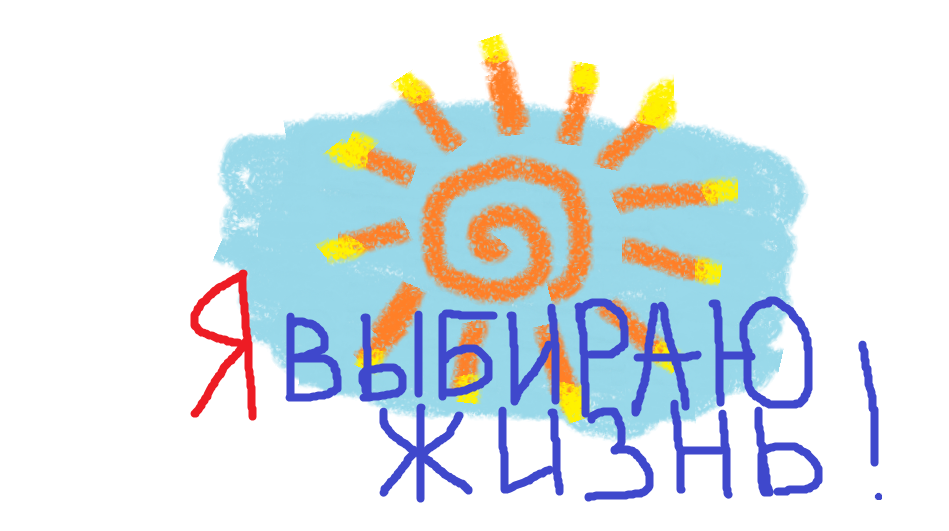 Я ВЫБИРАЮ
ЖИЗНЬ!